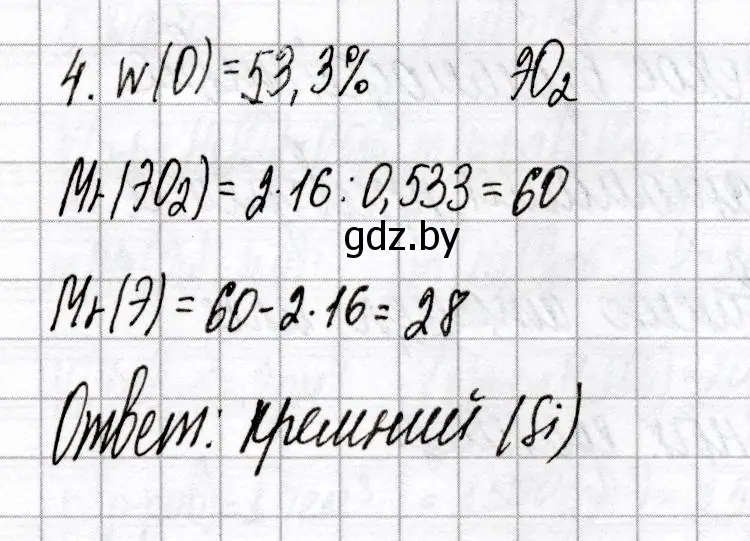 4. w(O) = 53,3% ЭO₂
Mr(ЭO₂) = 2·16 : 0,533 = 60
gdz.by
Mr(Э) = 60 - 2·16 = 28
Ответ: кремний (Si)